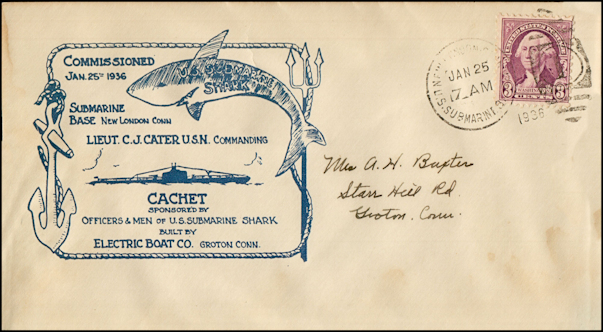 COMMISSIONED
JAN. 25TH 1936
U.S. SUBMARINE
SHARK
SUBMARINE
BASE NEW LONDON CONN
LIEUT. C.J. CATER U.S.N. COMMANDING
CACHET
SPONSORED BY
OFFICERS & MEN OF U.S. SUBMARINE SHARK
BUILT BY
ELECTRIC BOAT CO. GROTON CONN.
JAN 25
7 AM
1936
U.S. SUBMARINE
UNITED STATES POSTAGE
3 3
Mrs A. H. Baxter
Starr Hill Rd.
Groton. Conn.